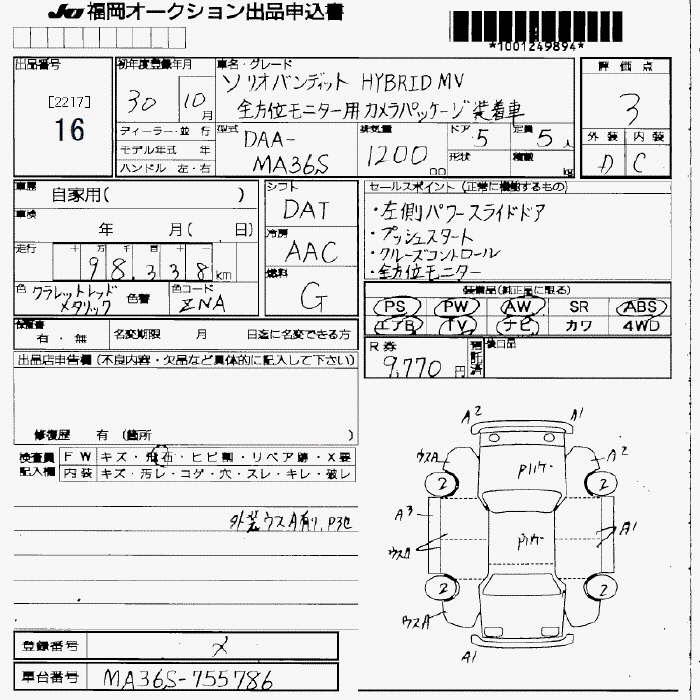 JU 福岡オークション出品申込書
*1001249894*
出品番号
[2217]
16
初年度登録年月
30 10月
ディーラー・並 行
モデル年式 年
ハンドル 左・右
車名・グレード
ソリオバンディット HYBRID MV
全方位モニター用カメラパッケージ装着車
型式 DAA-
MA36S
排気量 1200 cc
ドア 5
形状
定員 5 人
積載 kg
評価点
3
外装 内装
D C
車歴 自家用( )
車検 年 月( . 日)
走行 十 万 千 百 十 一
98,338 km
色 クラレットレッド
メタリック
色替
色コード
ZNA
シフト
DAT
冷房
AAC
燃料
G
セールスポイント (正常に機能するもの)
・左側パワースライドドア
・プッシュスタート
・クルーズコントロール
・全方位モニター
装備品(純正品に限る)
PS PW AW SR ABS
エアB TV ナビ カワ 4WD
保証書
有・無
名変期限 月 日迄に名変できる方
R券
9,770 円
預託済
後日品
出品店申告欄 (不良内容・欠品など具体的に記入して下さい)
修復歴 有 (箇所 )
検査員記入欄
FW キズ・飛石・ヒビ割・リペア跡・X要
内装 キズ・汚レ・コゲ・穴・スレ・キレ・破レ
外装ウスA有り,P3他
A2 A1
ウスA A2
2 2
A3 A1
ウスA
2 2
ウスA
A1
登録番号 メ
車台番号 MA36S-755786